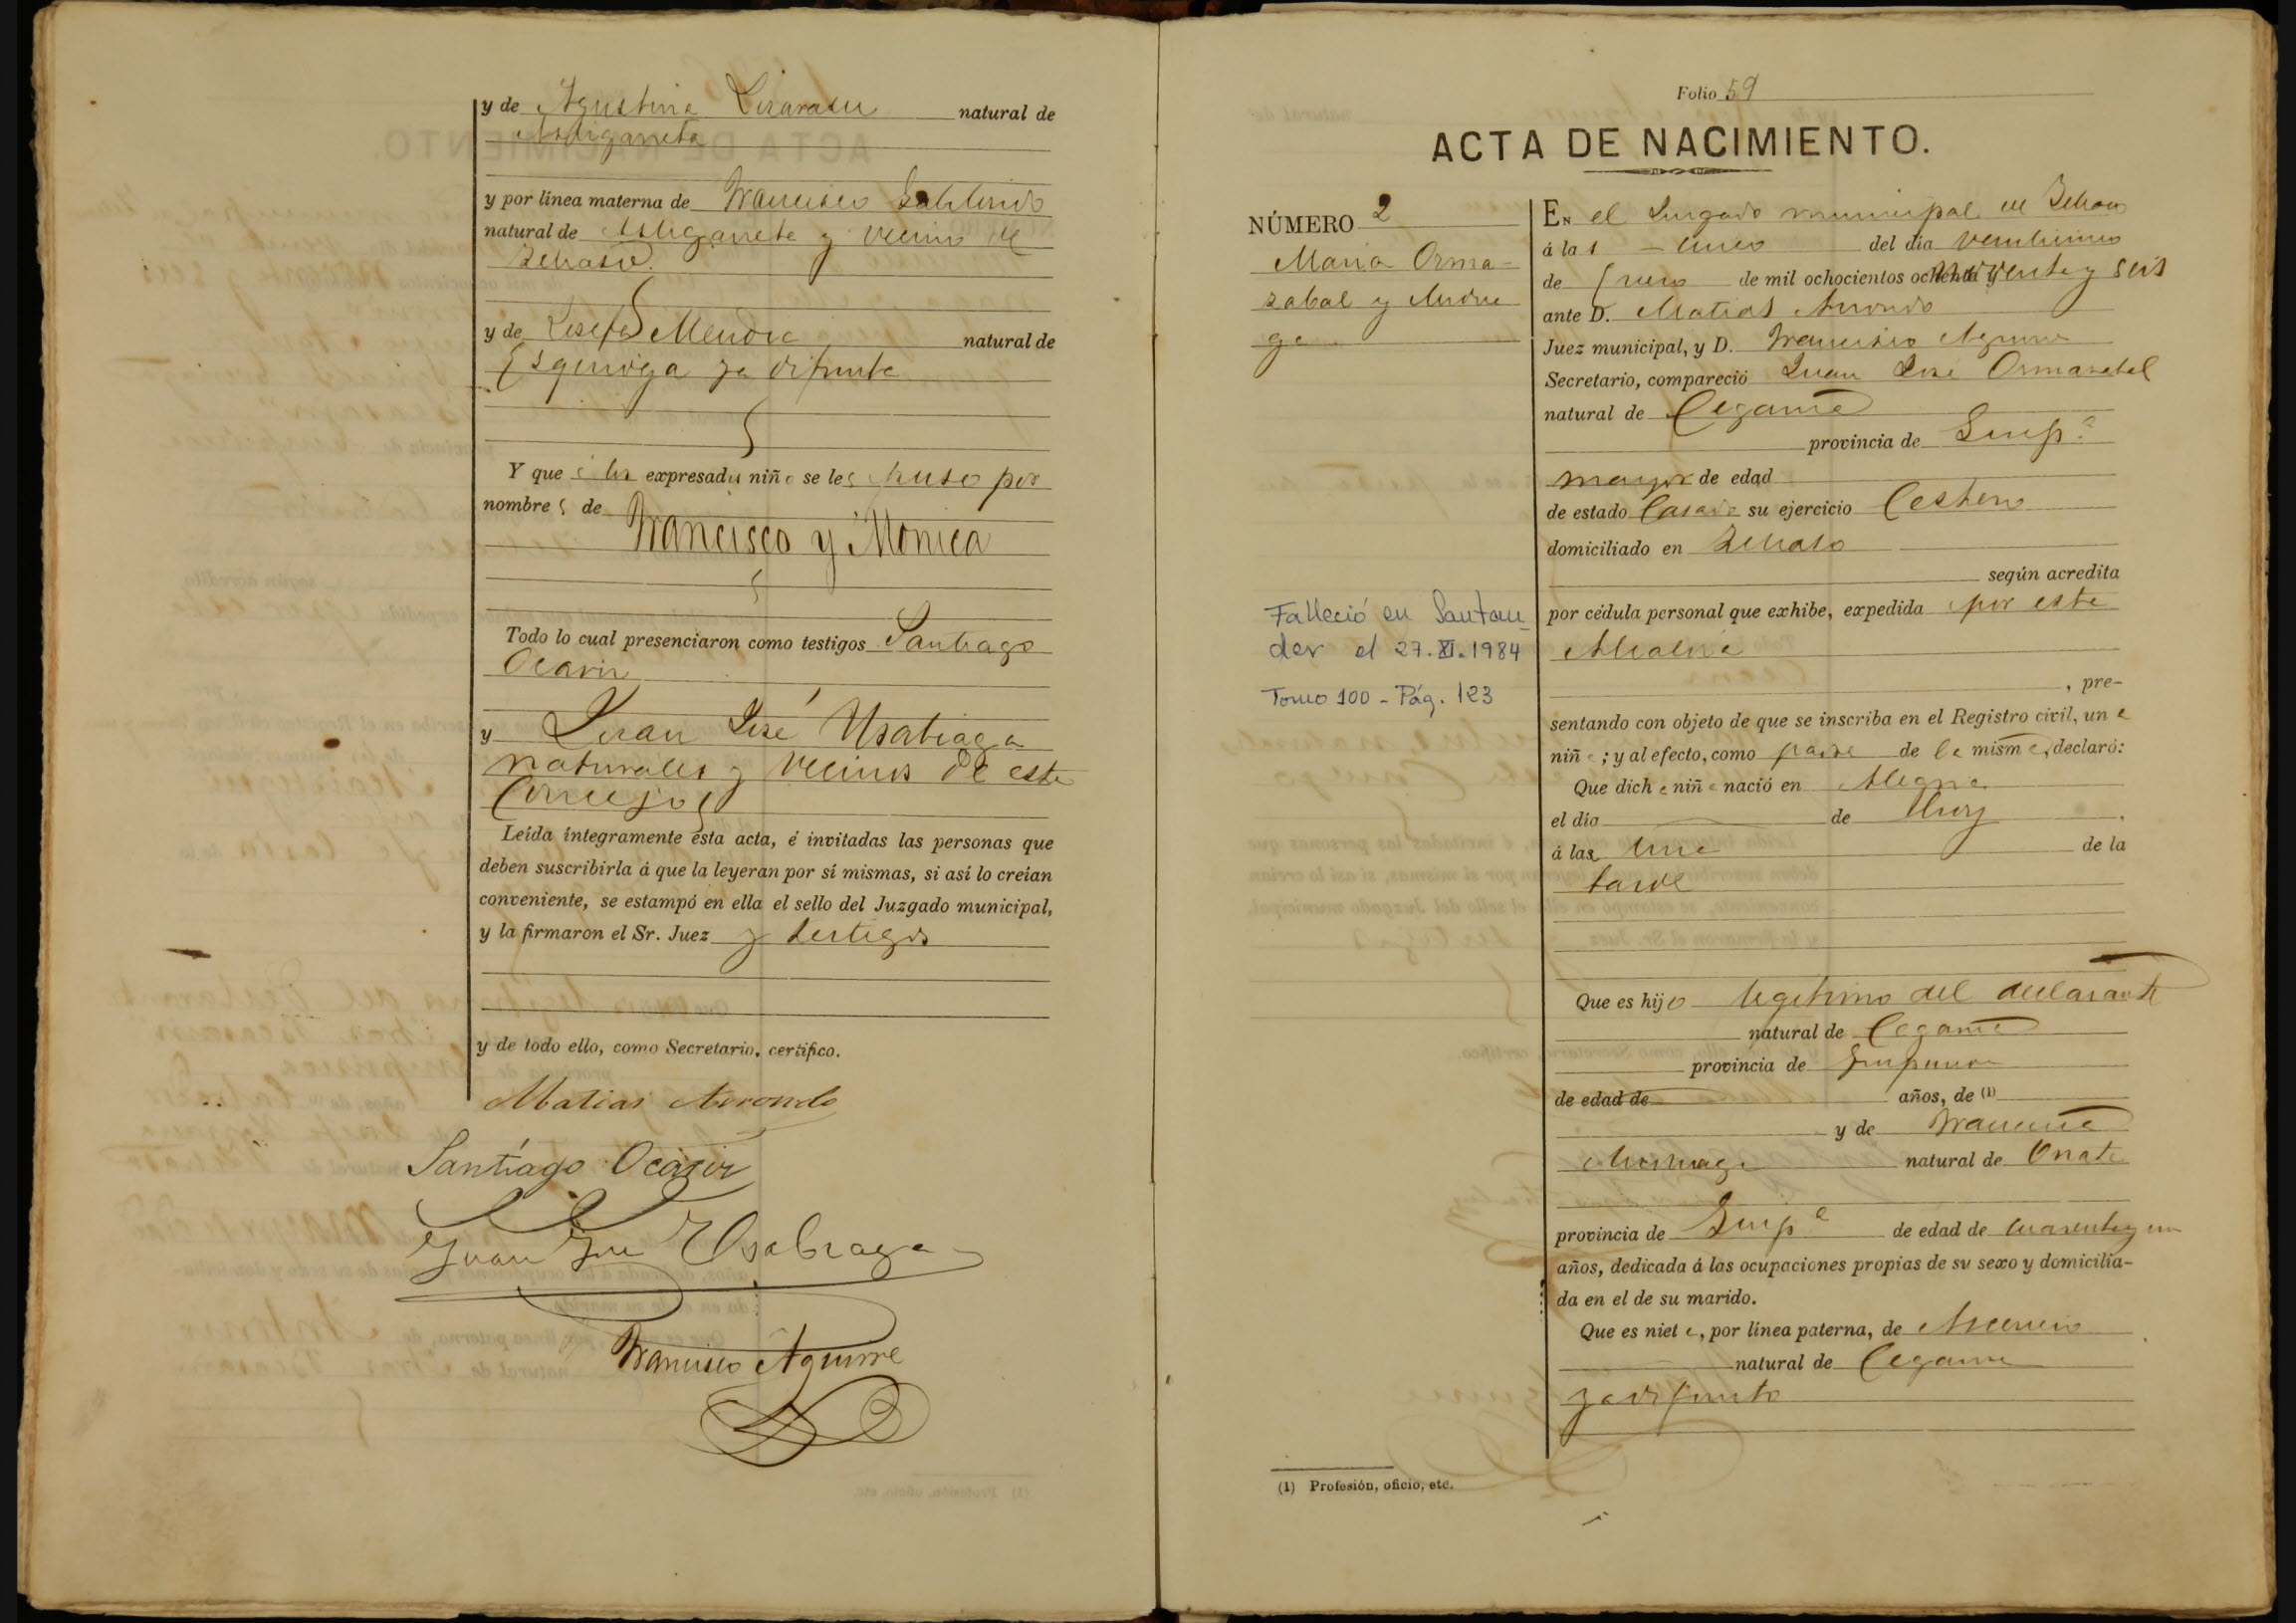 y de Agustina Lizarazu natural de
Astigarreta
y por línea materna de Francisco
natural de Astigarreta y vecino de
y de Josefa Mendia natural de
Esquioga ya difunta
Y que á los expresados niños se les puso por
nombres de
Francisco y Mónica
Todo lo cual presenciaron como testigos Santiago
Ocariz
y Juan José Usabiaga
naturales y vecinos de este
Concejo
Leída íntegramente esta acta, é invitadas las personas que
deben suscribirla á que la leyeran por sí mismas, si así lo creían
conveniente, se estampó en ella el sello del Juzgado municipal,
y la firmaron el Sr. Juez y testigos
y de todo ello, como Secretario, certifico.
Matias Arrondo
Santiago Ocariz
Juan José Usabiaga
Francisco Aguirre
Folio 59
ACTA DE NACIMIENTO.
NÚMERO 2
Maria Orma-
zabal y
Falleció en Santan-
der el 27.XI.1984
Tomo 100 - Pág. 123
EN el Juzgado municipal de
á las cinco del día veinticinco
de Enero de mil ochocientos ochenta y noventa y seis
ante D. Matias Arrondo
Juez municipal, y D. Francisco Aguirre
Secretario, compareció Juan José Ormazabal
natural de Cegama
provincia de Guip.a
mayor de edad
de estado Casado su ejercicio Cestero
domiciliado en
según acredita
por cédula personal que exhibe, expedida por este
Alcaldia
, pre-
sentando con objeto de que se inscriba en el Registro civil, una
niña; y al efecto, como padre de la misma, declaró:
Que dicha niña nació en Alegria
el día de Hoy
á las una de la
tarde
Que es hijo legitimo del declarante
natural de Cegama
provincia de Guipuzcoa
de edad de años, de (1)
y de Francisca
natural de Oñate
provincia de Guip.a de edad de cuarenta y un
años, dedicada á las ocupaciones propias de su sexo y domicilia-
da en el de su marido.
Que es nieta, por línea paterna, de Ascencio
natural de Cegama
ya difunto
(1) Profesión, oficio, etc.